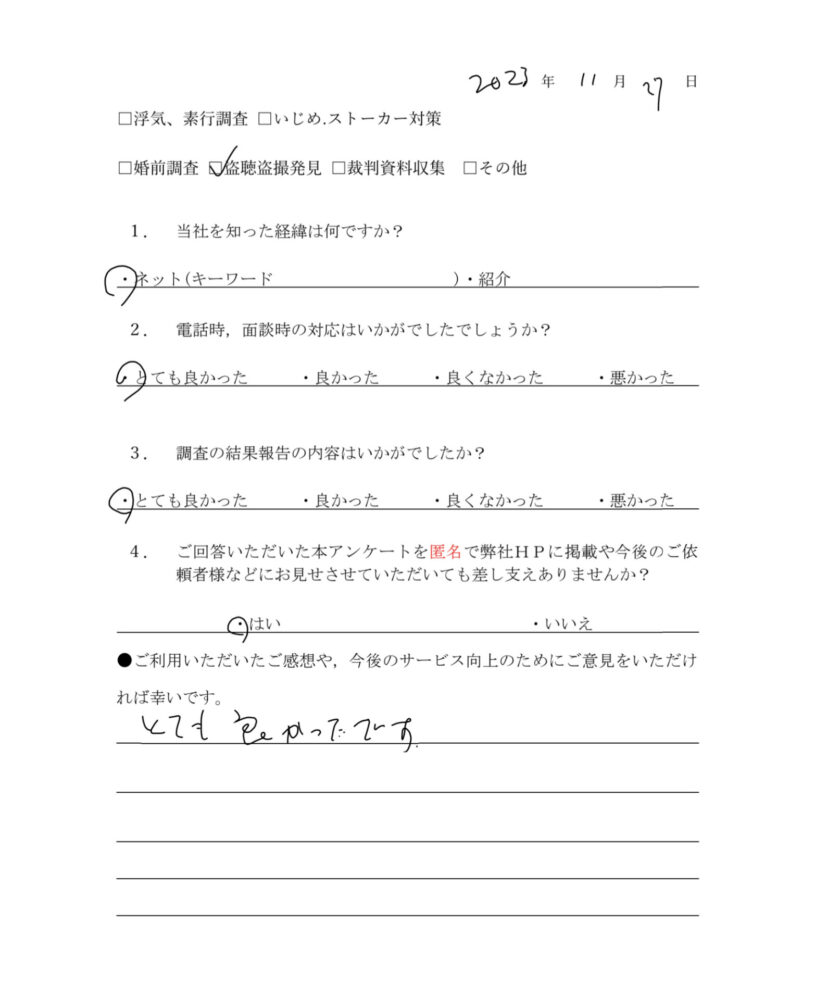 2023年 11月 27日
□浮気、素行調査 □いじめ.ストーカー対策
□婚前調査 ☑盗聴盗撮発見 □裁判資料収集 □その他
１． 当社を知った経緯は何ですか？
・ネット(キーワード )・紹介
２． 電話時，面談時の対応はいかがでしたでしょうか？
・とても良かった ・良かった ・良くなかった ・悪かった
３． 調査の結果報告の内容はいかがでしたか？
・とても良かった ・良かった ・良くなかった ・悪かった
４． ご回答いただいた本アンケートを匿名で弊社ＨＰに掲載や今後のご依
頼者様などにお見せさせていただいても差し支えありませんか？
・はい ・いいえ
●ご利用いただいたご感想や，今後のサービス向上のためにご意見をいただけ
れば幸いです。
とても良かったです.